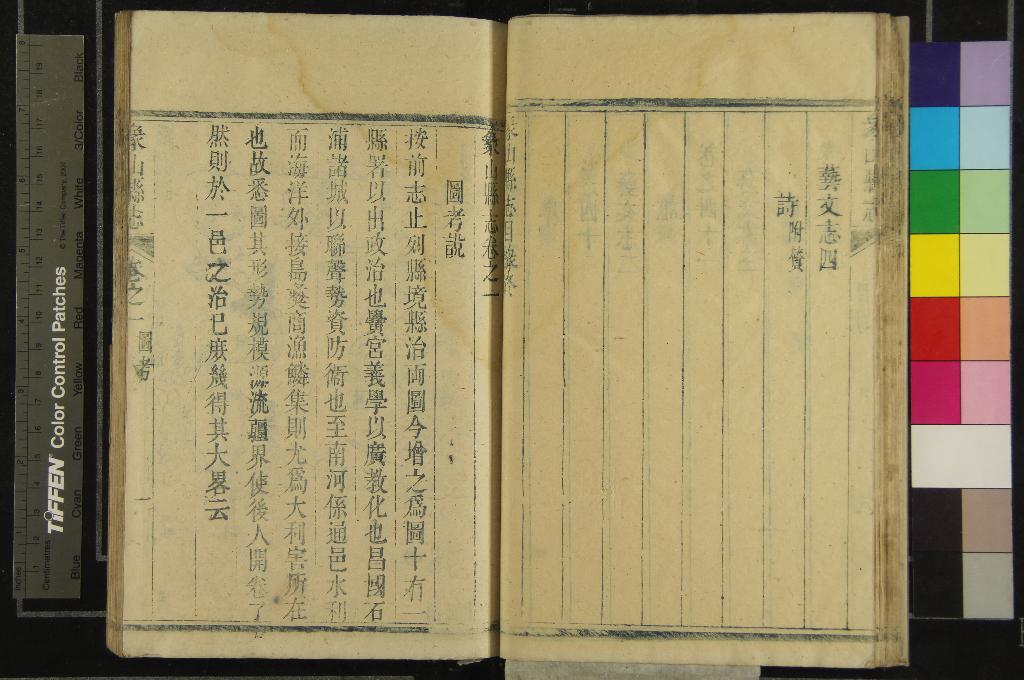 藝文志四
詩附賛
象山縣志目錄終
象山縣志卷之一
圖考說
按前志止列縣境縣治兩圖今增之爲圖十有一
縣署以出政治也黌宮義學以廣教化也昌國石
浦諸城以聯聲勢資防衛也至南河係通邑水利
而海洋外接島夷商漁鱗集則尤爲大利害所在
也故悉圖其形勢規模源流疆界使後人開卷了
然則於一邑之治已庶幾得其大畧云
象山縣志
卷之一
圖考
一
TIFFEN Color Control Patches
© The Tiffen Company, 2007
Centimetres
Inches
Blue
Cyan
Green
Yellow
Red
Magenta
White
3/Color
Black